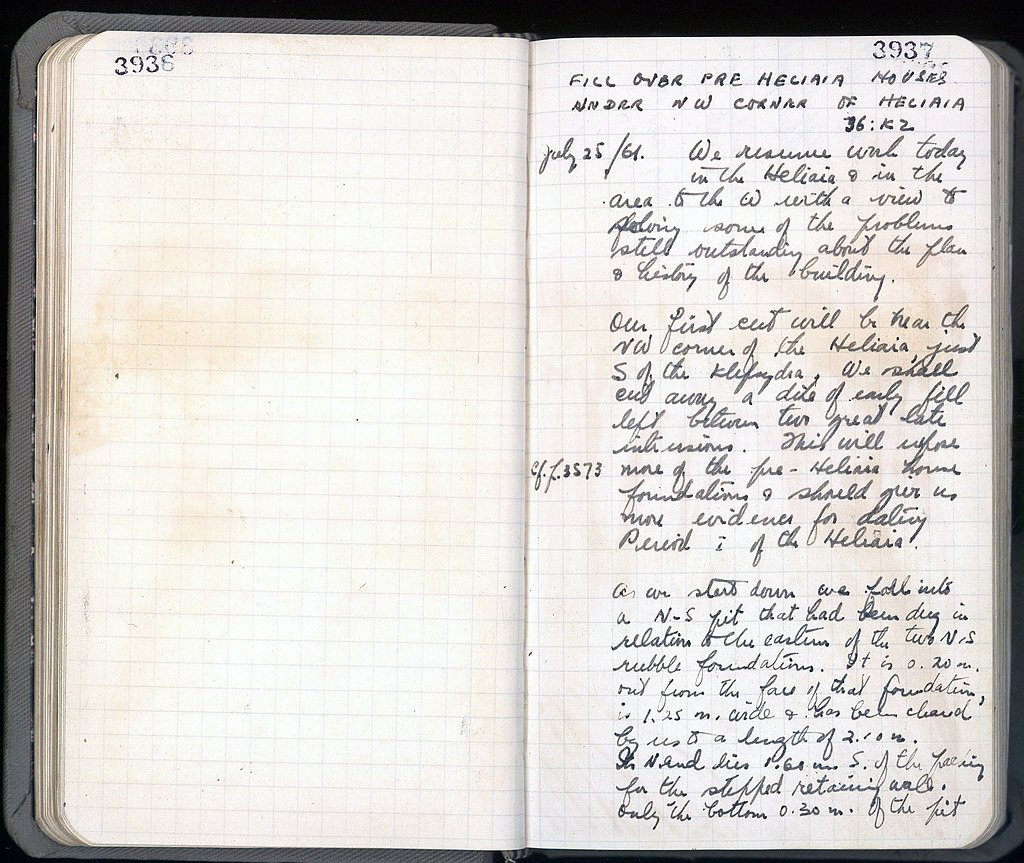 3936
3937
FILL OVER PRE HELIAIA HOUSES
UNDER NW CORNER OF HELIAIA
36:K2
July 25/61. We resume work today
in the Heliaia & in the
area to the W with a view to
solving some of the problems
still outstanding about the plan
& history of the building.
Our first cut will be near the
NW corner of the Heliaia, just
S of the Klepsydra. We shall
cut away a dike of early fill
left between two great late
intrusions. This will expose
cf. p. 3573 more of the pre-Heliaia house
foundations & should give us
more evidence for dating
Period i of the Heliaia.
As we start down we fall into
a N-S pit that had been dug in
relation to the eastern of the two N-S
rubble foundations. It is 0.20 m.
out from the face of that foundation,
is 1.25 m. wide & has been cleared
by us to a length of 2.10 m.
Its N end lies m S. of the packing
for the stepped retaining wall.
Only the bottom 0.30 m. of the pit